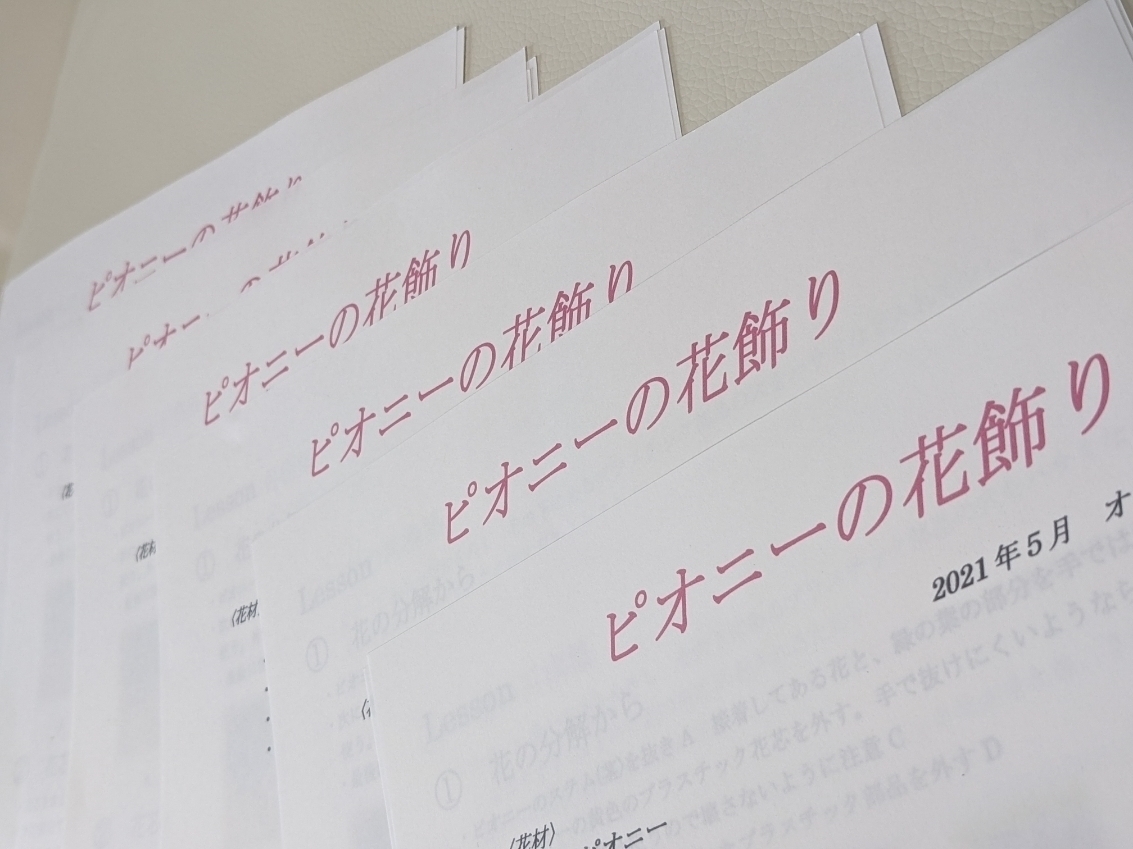 ピオニーの花飾り
ピオニー
ピオニーの花飾り
ピオニーの花飾り
ピオニーの花飾り
ピオニーの花飾り
2021年5月 オ
Lesson
① 花の分解から
Lesson
① 花の分解から
・ピオニーのステム(茎)を抜き A 接着してある花と、緑の葉の部分を手では
の黄色のプラスチック花芯を外す。手で抜けにくいようなら
ので壊さないように注意 C
プラスチック部品を外す D
〈花材
〈花材〉
ピオニー